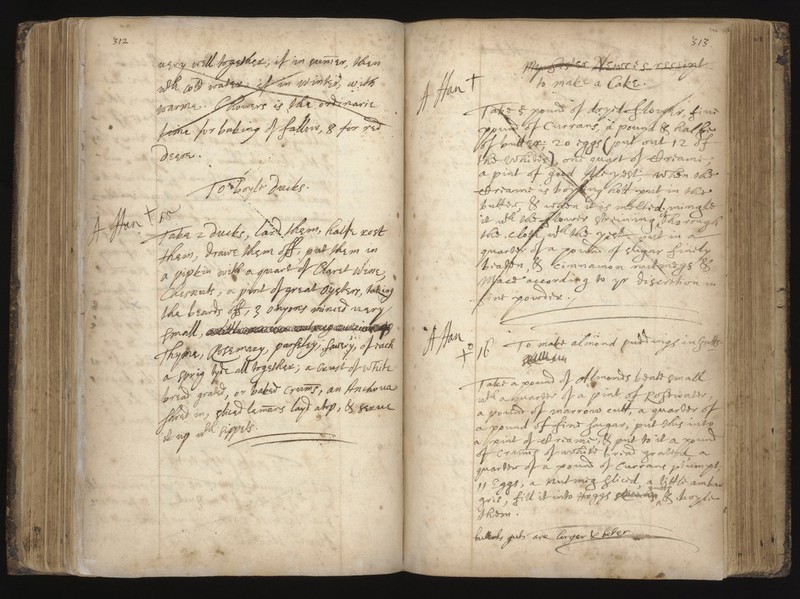 312
very well together; if in summer, then
wth cold water; if in winter, with
warme. 4 howers is the ordinarie
time for baking of fallow, & for red
Deere.
To boyle Ducks.
A Han +
Take 2 Ducks, lard them, halfe rost
them, drawe them off, put them in
a pipkin with a quart of Claret Wine,
Chesnuts, a pint of great oysters, taking
the beards off, 3 onyons minced very
small,
Thyme, Rosemary, parsley, savery, of each
a sprig tyde all together; a Crust of white
bread grated, or bated Crums, an Anchova
shred in; sliced lemons layd atop, & serve
it up wth sippets.
313
My Sister Newse's receipt
to make a Cake.
A Han +
Take 5 pound of dryed flower, five
pound of Currans, a pound & halfe
of butter; 20 eggs (put out 12 of
the whites), one quart of Creame;
a pint of good Ale yest; when the
Creame is boyling hott put in the
butter, & when it is melted, mingle
it wth the flower streining through
the Cloth wth the yest; put in a
quarter of a pound of sugar finely
beaten, & cinnamon nutmegs &
Mace according to yr discretion in
fine powder.
A Han
+ 16
To make almond puddings in gutts
Take a pound of Almonds beate small
wth a quarter of a pint of Rosewater,
a pound of marrow cutt, a quarter of
a pound of fine sugar, put this into
a pint of Creame, & put to it a pound
of Crums of white bread grated, a
quarter of a pound of Currans plumpt,
11 Eggs, a nutmeg sliced, a little amber
gris, fill it into Hoggs gutts & boyle
them.
bullocks guts are larger & better